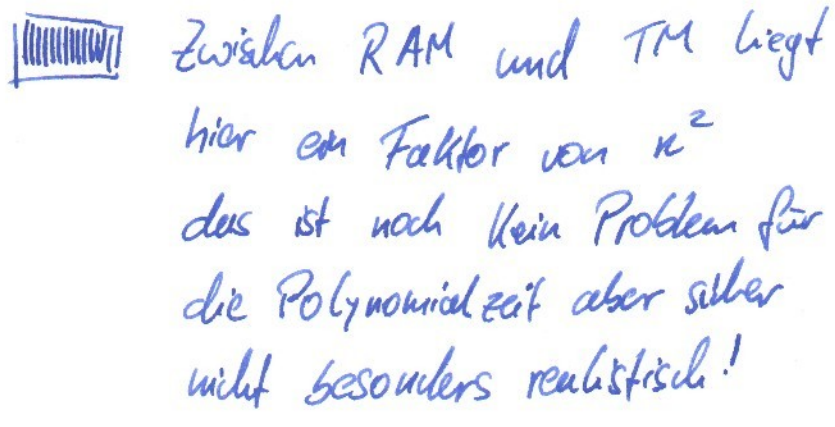 Zwischen RAM und TM liegt
hier ein Faktor von n²
das ist noch kein Problem für
die Polynomialzeit aber sicher
nicht besonders realistisch!